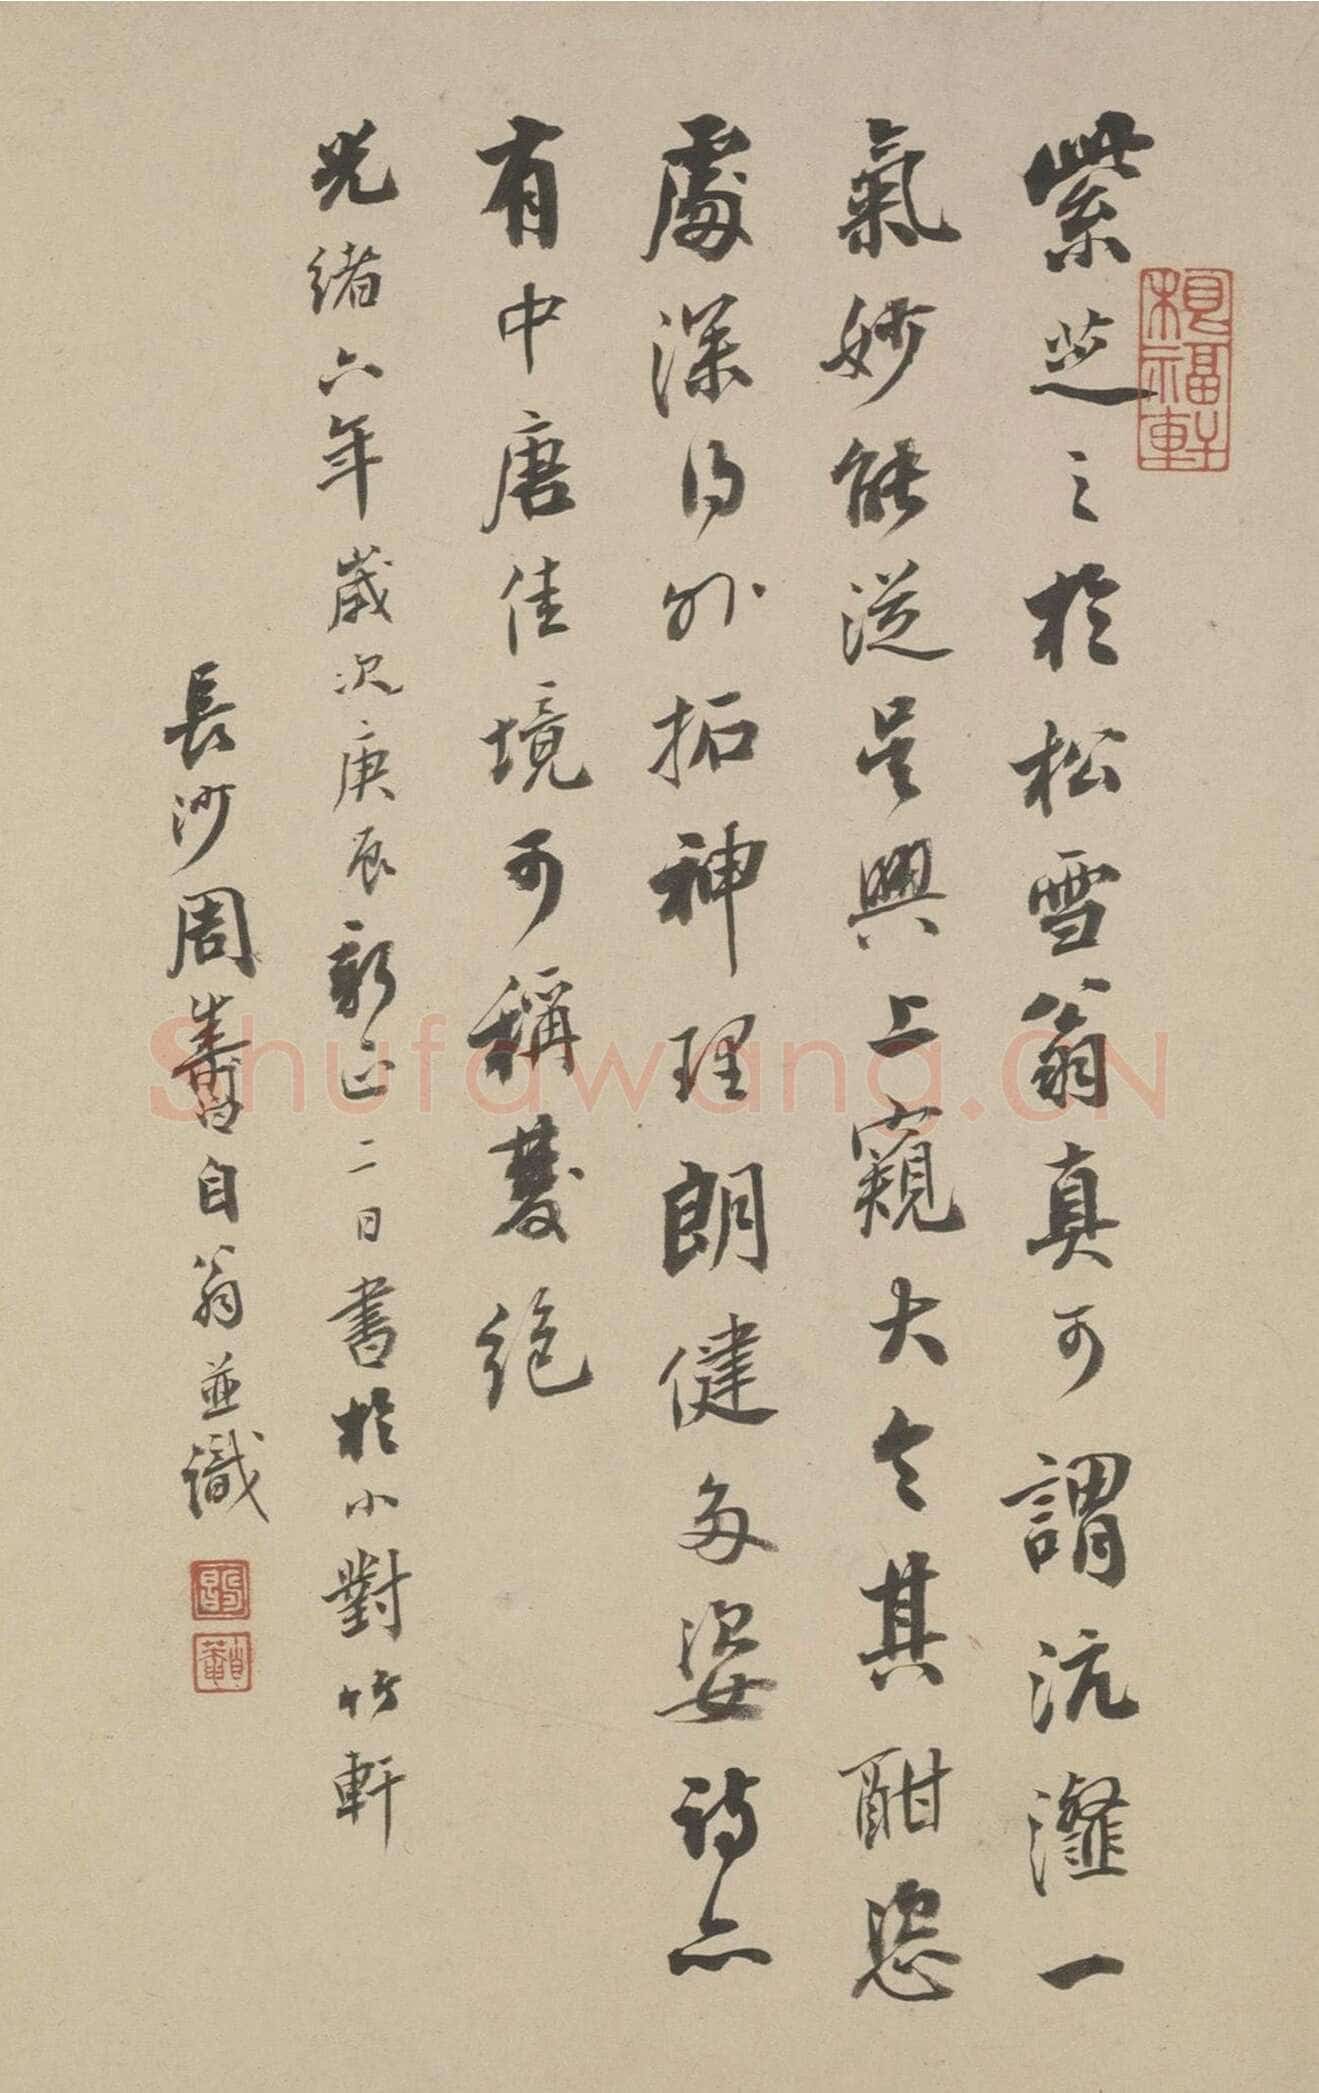 紫芝之於松雪翁真可謂沆瀣一
氣妙能從吳興上窺大令其酣恣
處深得外拓神理朗健多姿詩亦
有中唐佳境可稱雙絕
光緒六年歲次庚辰新正二日書於小對竹軒
長沙周壽昌自翁並識
Shufawang.CN